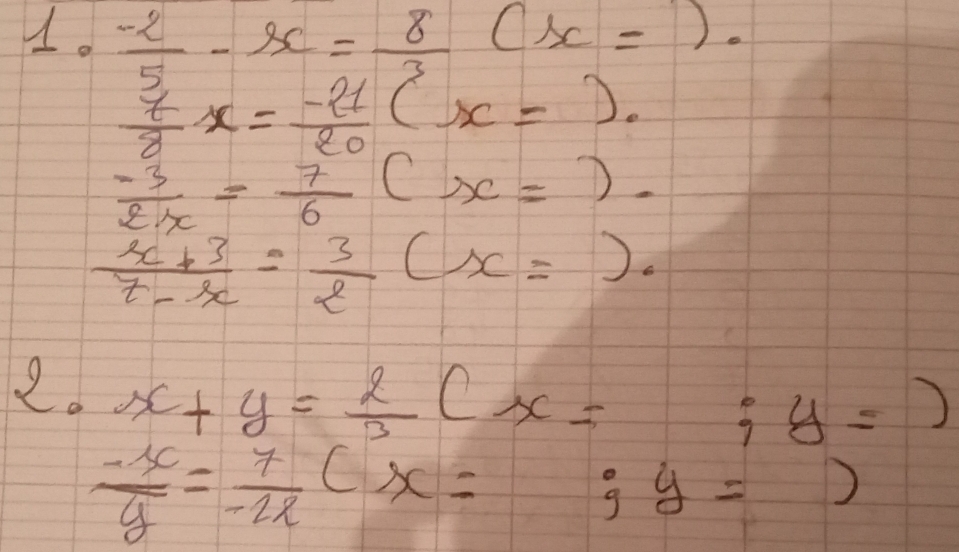 1. -2/5 - x = 8/3 (x = ).
7/8 x = -21/20 (x = ).
-3/2x = 7/6 (x = ).
x+3/7-x = 3/2 (x = ).
2. x + y = 2/3 (x = ; y = )
-x/y = 7/-12 (x = ; y = )